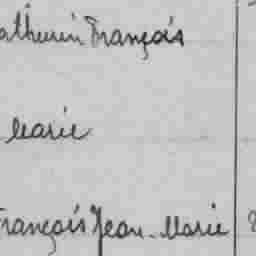 athurin François
Marie
François Jean-Marie